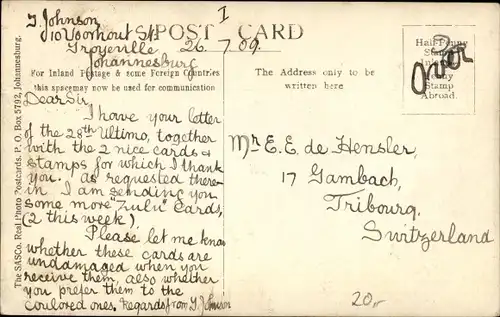 I
J. Johnson
10 Voorhout St.
Troyeville
Johannesburg
POST CARD
26. 7. 09.
For Inland Postage & some Foreign Countries
this space may now be used for communication
The Address only to be
written here
Half-Penny
Stamp
Penny
Stamp
Abroad.
over
The SASCo. Real Photo Postcards. P. O. Box 5792, Johannesburg.
Dear Sir
I have your letter
of the 28th Ultimo, together
with the 2 nice cards &
stamps for which I thank
you. As requested there-
in I am sending you
some more "Zulu" Cards,
(2 this week)
Please let me know
whether these cards are
undamaged when you
receive them, also whether
you prefer them to the
coulored ones, Regards from J. Johnson
Mr E. E. de Hensler,
17 Gambach,
Fribourg,
Switzerland
20,-